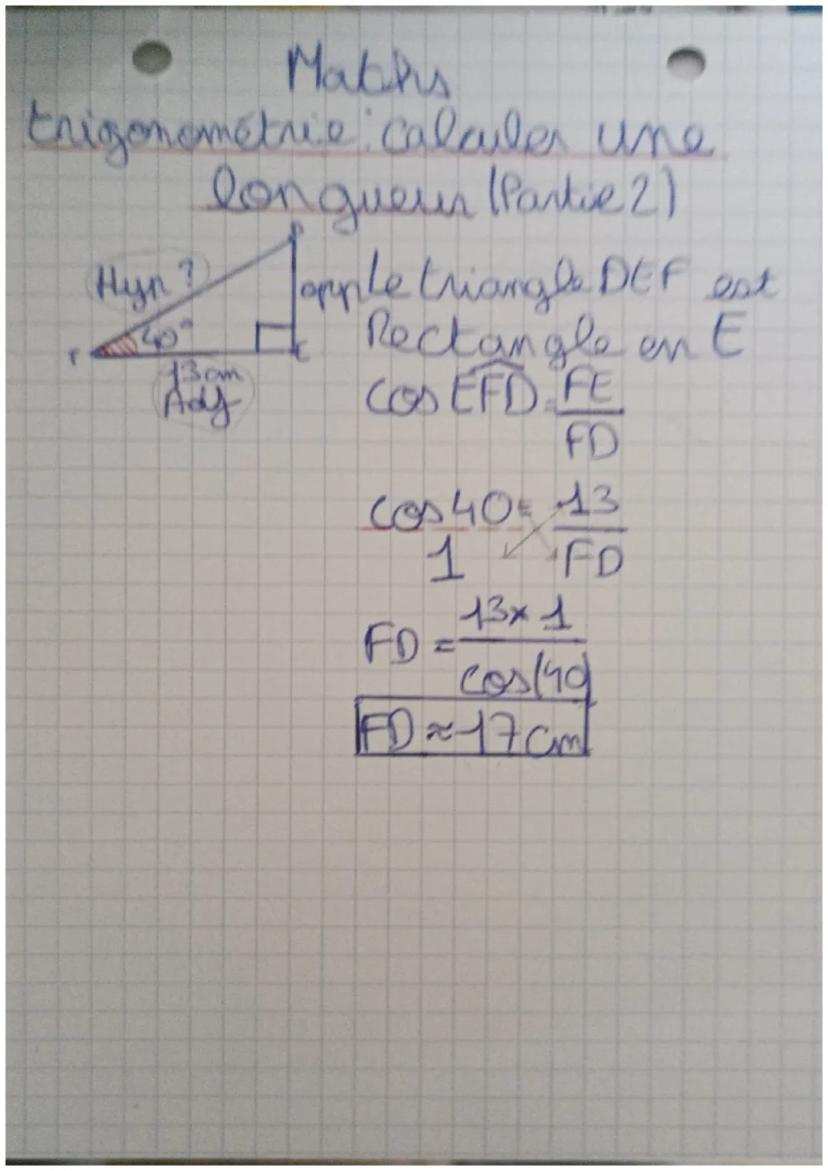 Maths
trigonométrie : calculer une
longueur (Partie 2)
D
Hyp ?
opp
40°
F
E
13 cm
Adj
Le triangle DEF est
Rectangle en E
cos EFD = FE
FD
cos 40 = 13
1 FD
FD = 13 x 1
cos(40)
FD ≈ 17 cm